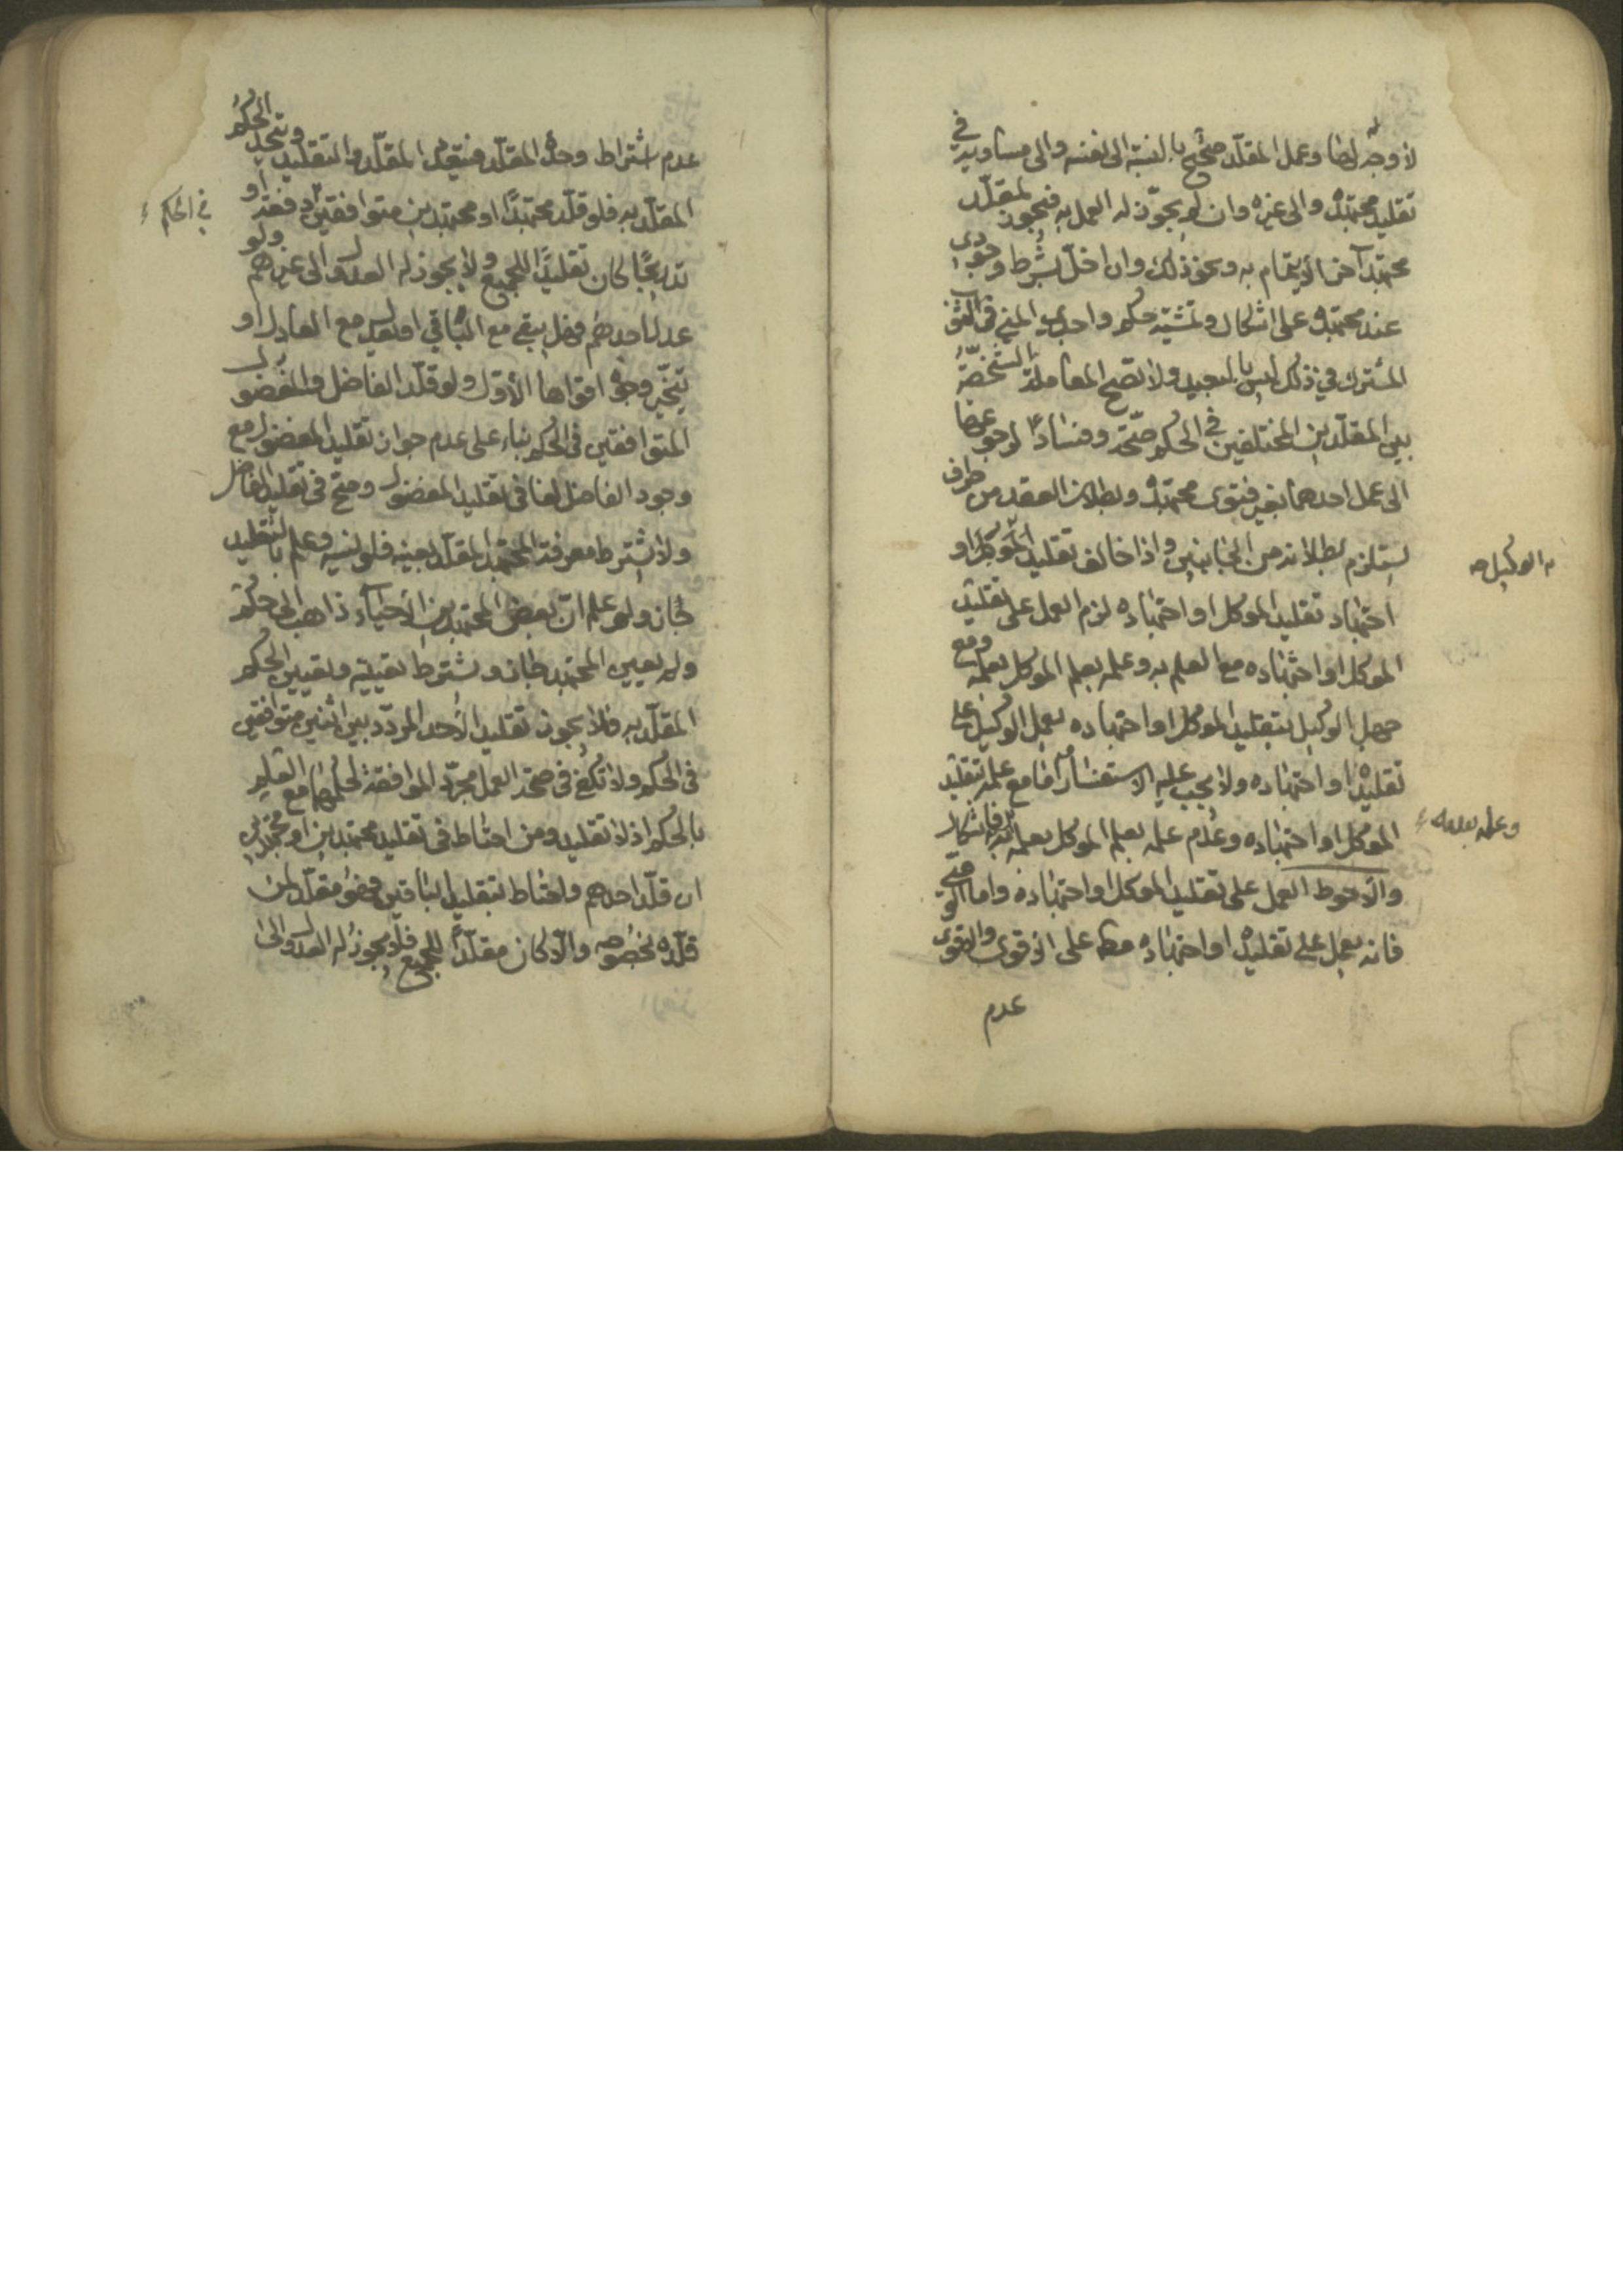 لا وجه له ايضا وعمل المقلد صحيح بالنسبة الى نفسه والى مساويه في
تقليد مجتهده والى غيره وان لم يجوز له العمل به فيجوز لمقلد
مجتهد آخر الايتمام به ونحو ذلك وان اخل بشرط وجودى
عند مجتهده على اشكال وتمشية حكم واجدى المني في الثوب
المشترك في ذلك ليس بالبعيد ولا تصح المعاملة الشخصية
بين المقلدين المختلفين في الحكم صحة وفسادا لرجوعها
الى عمل احدهما بغير فتوى مجتهده وبطلان العقد من طرف
يستلزم بطلانه من الجانبين واذا خالف تقليد الوكيل او
به الوكيل صح
اجتهاده تقليد الموكل او اجتهاده لزم العمل على تقليد
الموكل او اجتهاده مع العلم به وعلمه بعلم الموكل بعلمه ومع
جهل الوكيل بتقليد الموكل او اجتهاده يعمل الوكيل على
تقليده او اجتهاده ولا يجب عليه الاستفسار اما مع علمه بتقليد
الموكل او اجتهاده وعدم علمه بعلم الموكل بعلمه به فاشكال
وعلمه بعدمه
والاحوط العمل على تقليد الموكل او اجتهاده واما الوصي
فانه يعمل على تقليده او اجتهاده مطلقا على الاقوى والاقوى
عدم
عدم اشتراط وحدة المقلد فيتعدد المقلد والتقليد ويتحد الحكم
المقلد به فلو قلد مجتهدا او مجتهدين متوافقين دفعة او
في الحكم
تدريجا كان تقليدا للجميع ولا يجوز له العدول الى غيرهم ولو
عدل احدهم فهل يبقى مع الباقي او يعدل مع العادل او
يتخير وجوه اقواها الاول ولو قلد الفاضل والمفضول
المتوافقين في الحكم بناء على عدم جواز تقليد المفضول مع
وجود الفاضل لغا في تقليد المفضول وصح في تقليد الفاضل
ولا يشترط معرفة المجتهد المقلد بعينه فلو نسيه وعلم بالتقليد
جاز ولو علم ان بعض المجتهدين الاحياء ذاهب الى حكم
ولم يعين المجتهد جاز ويشترط تعيينه وتعيين الحكم
المقلد به فلا يجوز تقليد الاحد المردد بين اثنين متوافقين
في الحكم ولا تكفي في صحة العمل مجرد الموافقة لحكمهما مع العلم
بالحكم اذ لا تقليد ومن احتاط في تقليد مجتهدين او مجتهدين
ان قلد احدهم واحتاط بتقليد الباقين فهو مقلد لمن
قلده بخصوصه والا كان مقلدا للجميع فلا يجوز له العدول الى